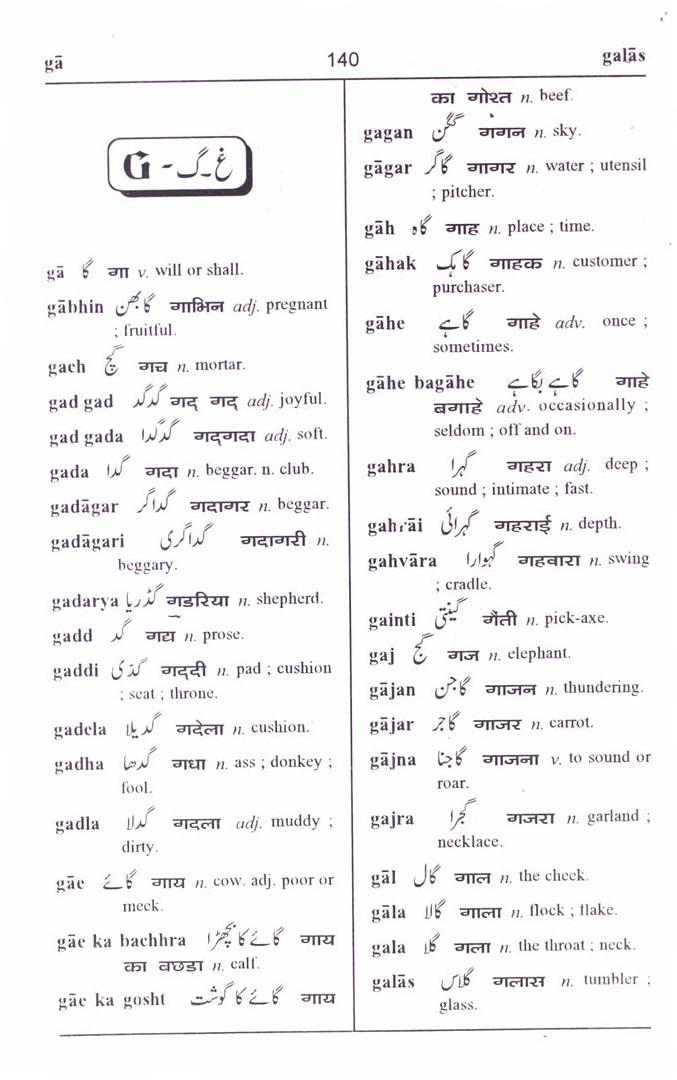 gā 140 galās
G - گ ـ غ
gā گا गा v. will or shall.
gābhin گابھن गाभिन adj. pregnant
; fruitful.
gach گچ गच n. mortar.
gad gad گدگد गद् गद् adj. joyful.
gad gada گدگدا गद्गदा adj. soft.
gada گدا गदा n. beggar. n. club.
gadāgar گداگر गदागर n. beggar.
gadāgari گداگری गदागरी n.
beggary.
gadarya گڈریا गडरिया n. shepherd.
gadd گد गद्य n. prose.
gaddi گدّی गद्दी n. pad ; cushion
; seat ; throne.
gadela گدیلا गदेला n. cushion.
gadha گدھا गधा n. ass ; donkey ;
fool.
gadla گدلا गदला adj. muddy ;
dirty.
gāe گائے गाय n. cow. adj. poor or
meek.
gāe ka bachhra گائے کا بچھڑا गाय
का बछडा n. calf.
gāe ka gosht گائے کا گوشت गाय
का गोश्त n. beef.
gagan گگن गगन n. sky.
gāgar گاگر गागर n. water ; utensil
; pitcher.
gāh گاہ गाह n. place ; time.
gāhak گاہک गाहक n. customer ;
purchaser.
gāhe گاہے गाहे adv. once ;
sometimes.
gāhe bagāhe گاہے بگاہے गाहे
बगाहे adv. occasionally ;
seldom ; off and on.
gahra گہرا गहरा adj. deep ;
sound ; intimate ; fast.
gahrāi گہرائی गहराई n. depth.
gahvāra گہوارا गहवारा n. swing
; cradle.
gainti گینتی गैंती n. pick-axe.
gaj گج गज n. elephant.
gājan گاجن गाजन n. thundering.
gājar گاجر गाजर n. carrot.
gājna گاجنا गाजना v. to sound or
roar.
gajra گجرا गजरा n. garland ;
necklace.
gāl گال गाल n. the cheek.
gāla گالا गाला n. flock ; flake.
gala گلا गला n. the throat ; neck.
galās گلاس गलास n. tumbler ;
glass.